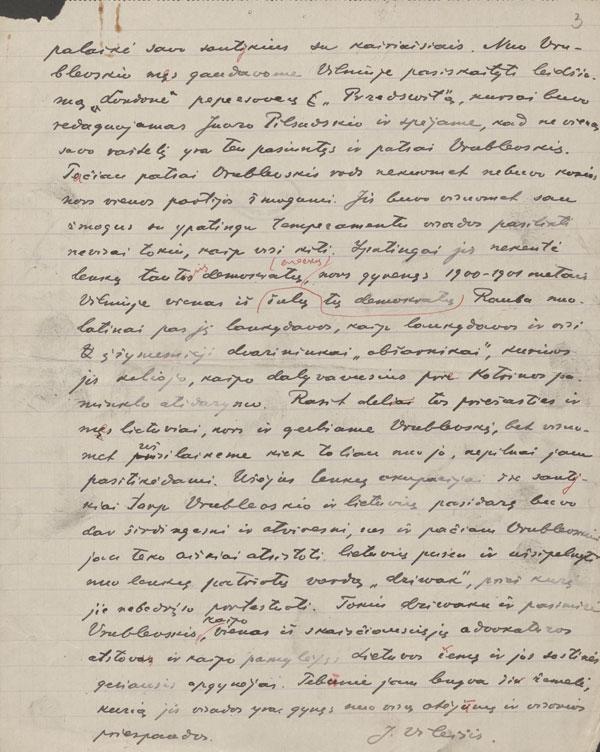 3
palaikė savo santykius su kairiaisiais. Nuo Vru-
blevskio męs gaudavome Vilniuje pasiskaityti leidžia-
mą „Londone“ pepeesovcų „Przedświtą“, kursai buvo
redaguojamas Juozo Pilsudskio ir spėjame, kad ne vieną
savo raštelį yra ten pasiuntęs ir patsai Vrublevskis.
Tačiau patsai Vrublevskis rods niekuomet nebuvo kokios
nors vienos partijos žmogumi. Jis buvo visuomet sau
žmogus su ypatingu temperamentu visados pasilikti
nevisai tokiu, kaip visi kiti. Ypatingai jis nekentė
lenkų tautos demokratų, nors gyvenęs 1900-1901 metais
Vilniuje vienas iš šulų tų demokratų Rauba nuo-
latinai pas jį lankydavos, kaip lankydavos ir visi
žymesnieji dvarininkai „obšarnikai“, kuriuos
jis koliojo, kaipo dalyvavusius prie Kotrinos pa-
minklo atidarymo. Rasit delia tos priežasties ir
męs lietuviai, nors ir gerbiame Vrublevskį, bet visuo-
met užsilaikėme kiek toliau nuo jo, nepilnai jam
pasitikėdami. Užėjus lenkų okupacijai šie santy-
kiai tarp Vrublevskio ir lietuvių pasidarę buvo
dar širdingesni ir atviresni, nes ir pačiam Vrublevskiui
jau teko aiškiai atsistoti lietuvių pusėn ir užsipelnyti
nuo lenkų patriotų vardą „dziwak“, prieš kurį
jis nebedrįso protestuoti. Tokiu dziwaku ir pasimirė
Vrublevskis, kaipo vienas iš skaisčiausiųjų advokatūros
atstovas ir kaipo pamylėjęs Lietuvos žemę ir jos sostinės
geriausis apgynėjai. Tebūnie jam lengva šia žemelė,
kurią jis visados yra gynęs nuo visų atėjūnų ir visokios
priespaudos.
J. Vileišis